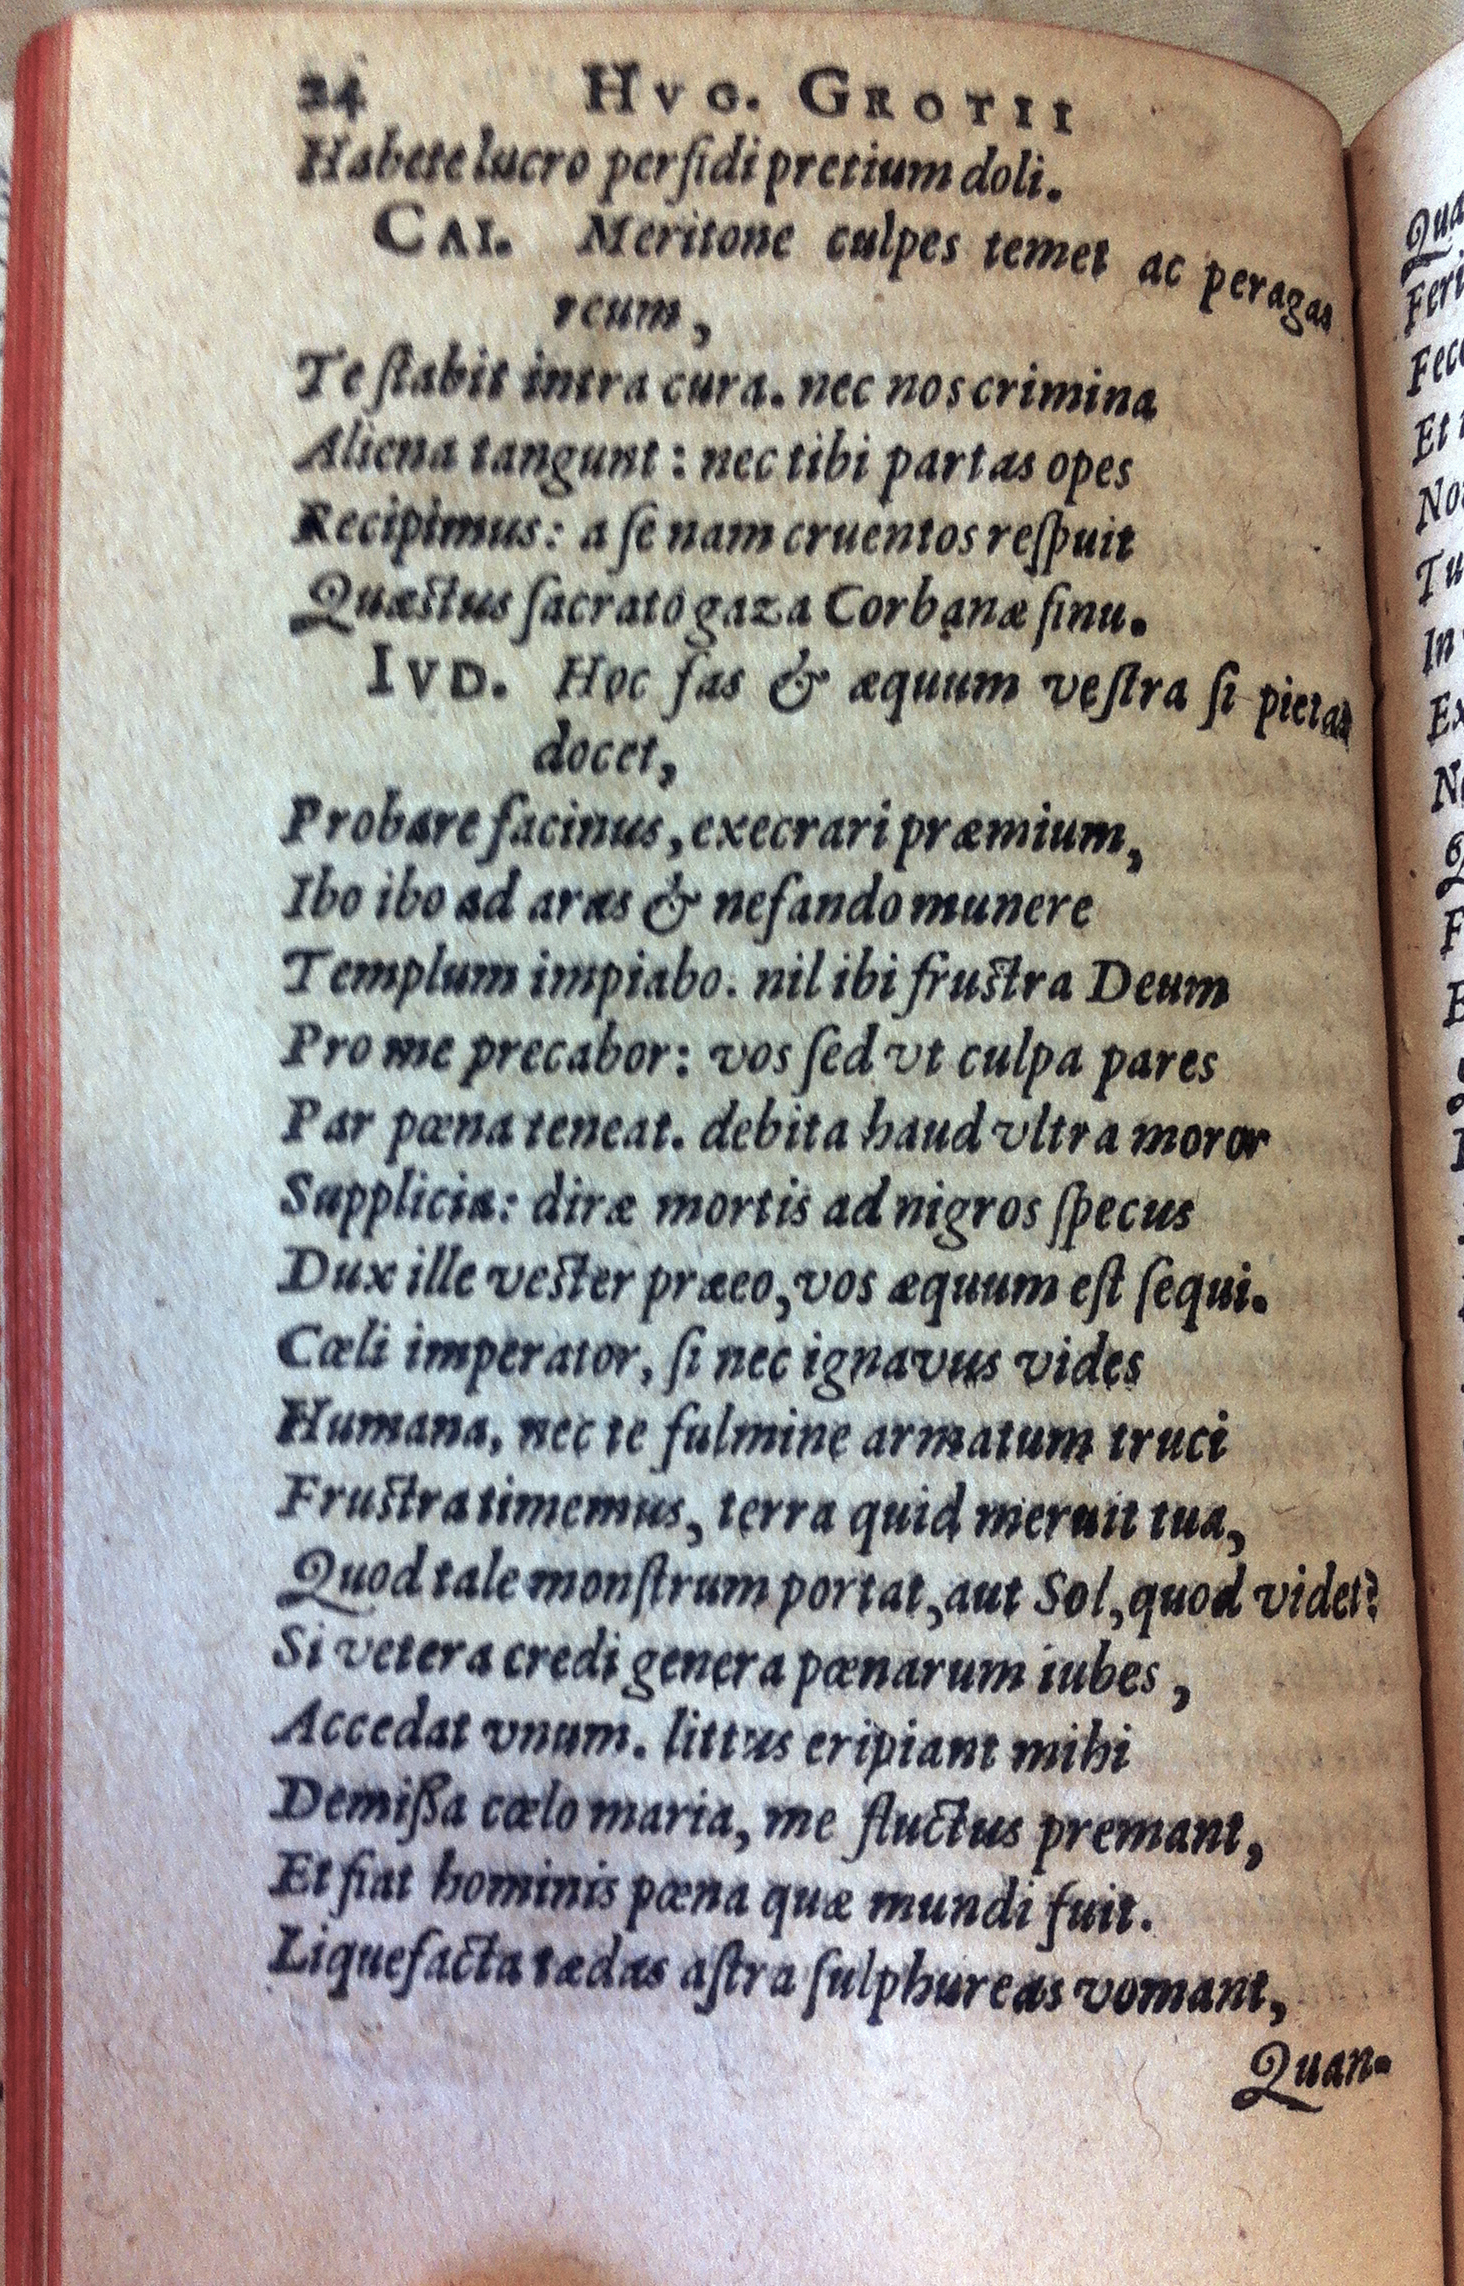 24 HVG. GROTII
Habete lucro perfidi pretium doli.
CAI. Meritone culpes temet ac peragas
reum,
Te ſtabit intra cura. nec nos crimina
Aliena tangunt: nec tibi partas opes
Recipimus: a ſe nam cruentos reſpuit
Quæstus ſacrato gaza Corbanæ ſinu.
IVD. Hoc fas & æquum veſtra ſi pietas
docet,
Probare facinus, execrari præmium,
Ibo ibo ad aras & nefando munere
Templum impiabo. nil ibi frustra Deum
Pro me precabor: vos ſed vt culpa pares
Par pœna teneat. debita haud vltra moror
Supplicia: diræ mortis ad nigros ſpecus
Dux ille vester præeo, vos æquum eſt ſequi.
Cœli imperator, ſi nec ignavus vides
Humana, nec te fulmine armatum truci
Frustra timemus, terra quid meruit tua,
Quod tale monſtrum portat, aut Sol, quod videt?
Si vetera credi genera pœnarum iubes,
Accedat vnum. littus eripiant mihi
Demißa cœlo maria, me fluctus premant,
Et fiat hominis pœna quæ mundi fuit.
Liquefacta tædas aſtra ſulphureas vomant,
Quan-
Feri
Et
In